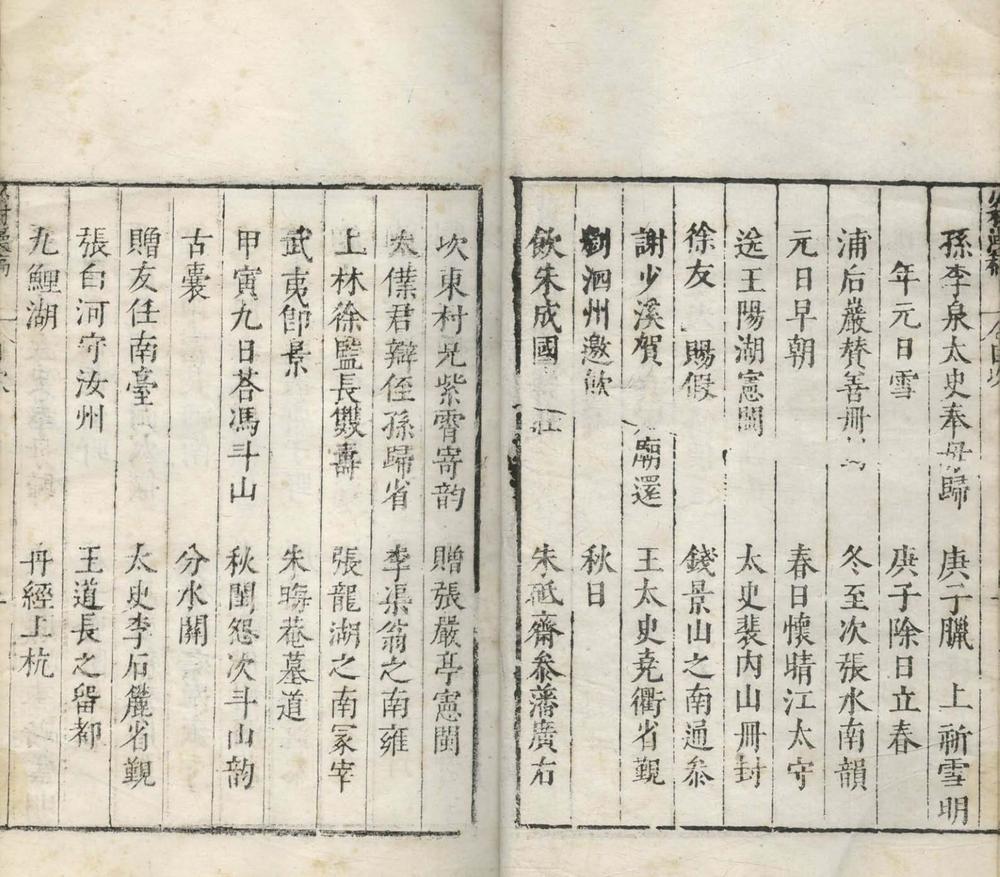 孫李泉太史奉母歸　庚子臘　上祈雪明
年元日雪　庚子除日立春
浦后巖賛善冊　冬至次張水南韻
元日早朝　春日懷晴江太守
送王陽湖憲閩　太史裴內山冊封
徐友　賜假　錢景山之南通叅
謝少溪賀　廟還　王太史堯衢省覲
劉泗州邀飲　秋日
飲朱成國莊　朱砥齋叅藩廣右
次東村兄紫霄寄韵　贈張嚴亭憲閩
太僕君辯侄孫歸省　李渠翁之南雍
上林徐監長雙壽　張龍湖之南冢宰
武夷卽景　朱晦菴墓道
甲寅九日荅馮斗山　秋閨怨次斗山韵
古囊　分水關
贈友任南臺　太史李石麓省覲
張白河守汝州　王道長之留都
九鯉湖　丹經上杭